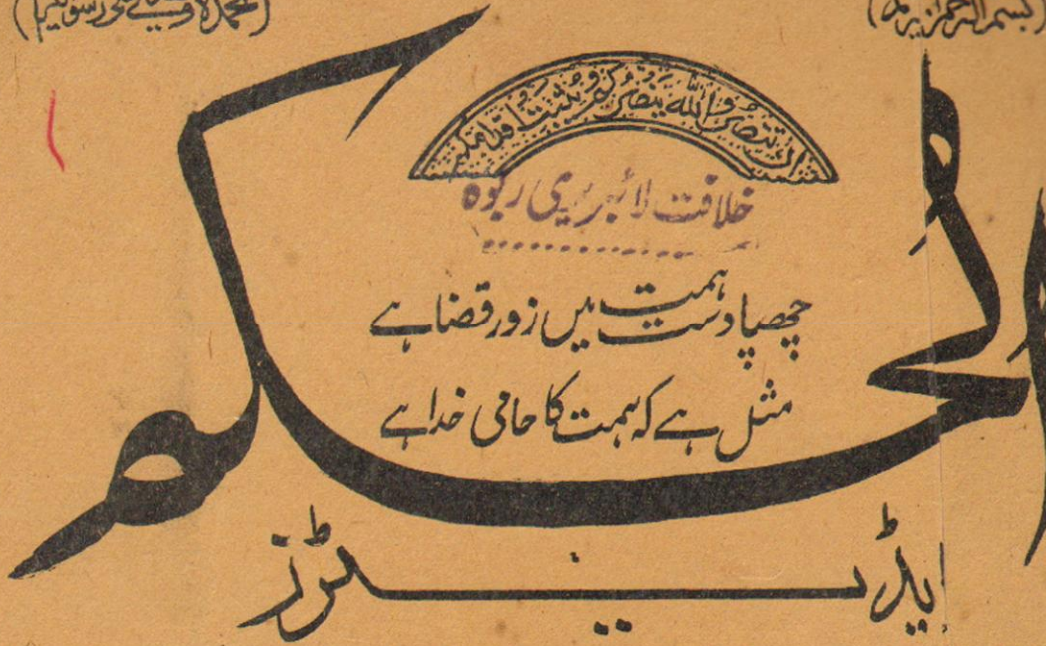 (بسم اللہ الرحمن الرحیم)
(نحمدہ و نصلی علی رسولہ الکریم)
ان تنصروا اللہ ینصرکم ویثبت اقدامکم
الحکم
خلافت لائبریری ربوہ
چھپا دست ہمت میں زور قضا ہے
مثل ہے کہ ہمت کا حامی خدا ہے
ایڈیٹرز